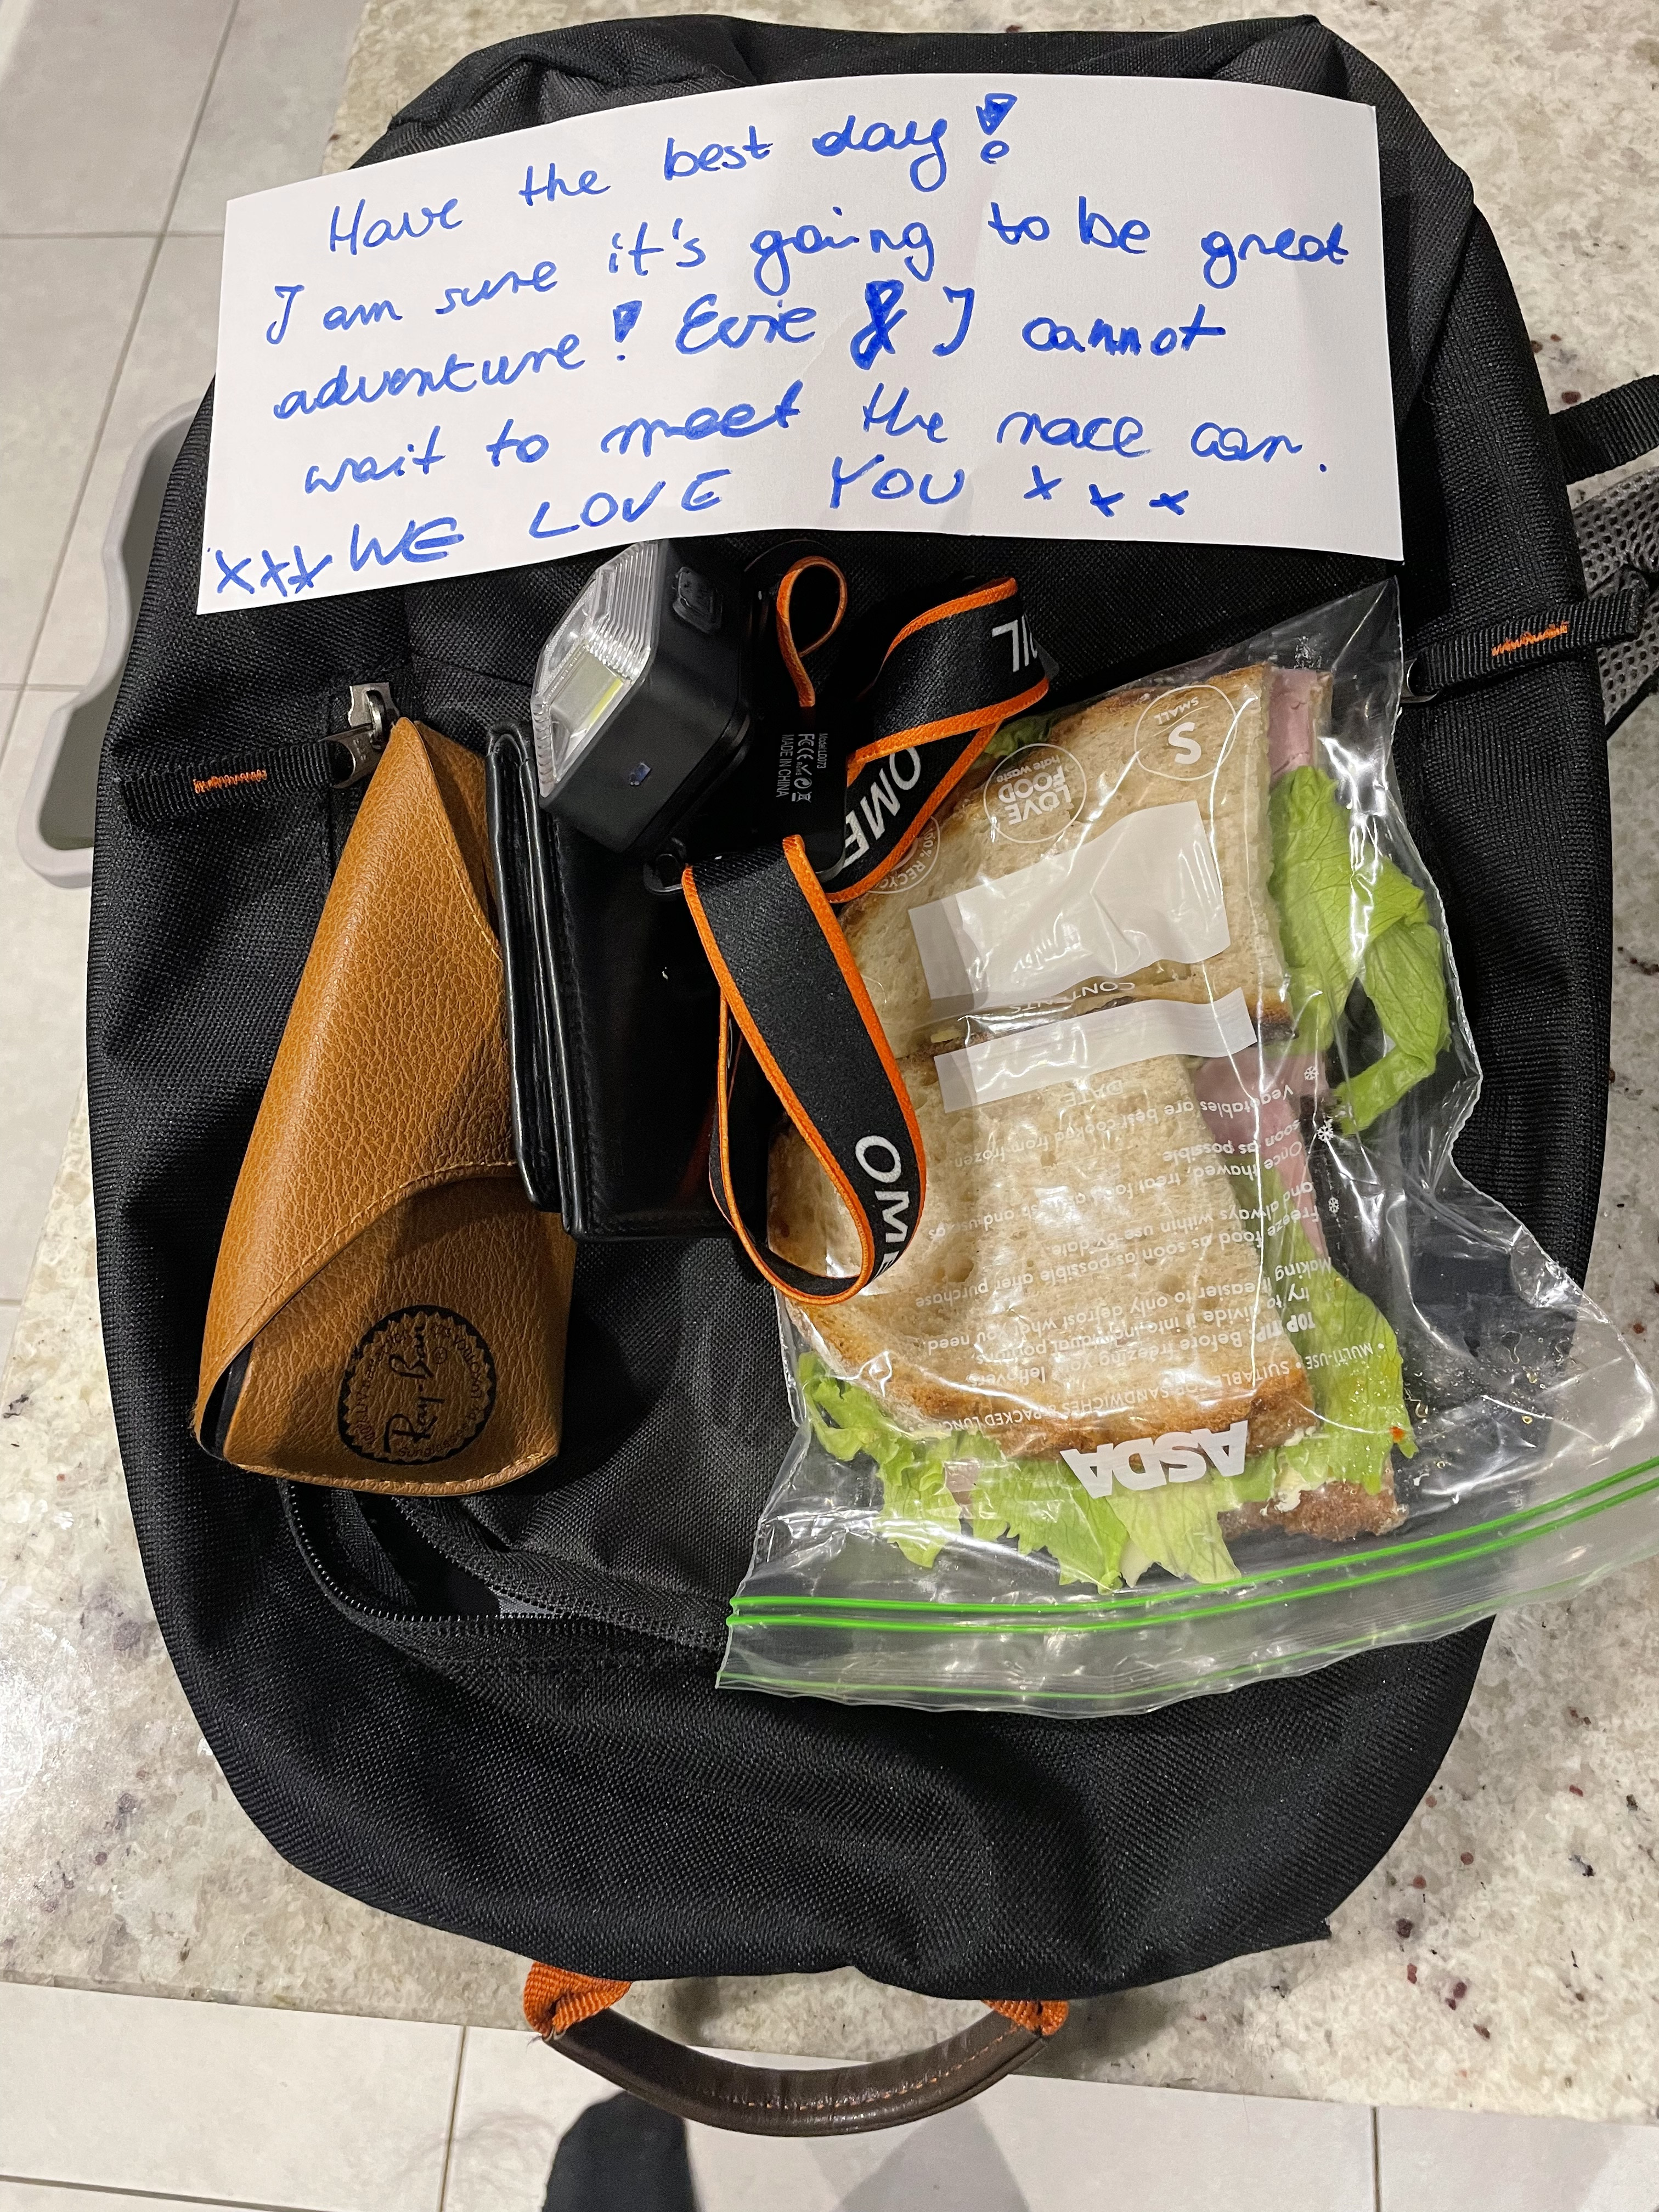 Have the best day!
I am sure it's going to be great
adventure! Evie & I cannot
wait to meet the race car.
xxx WE LOVE YOU x x x
OME
OME
Model LD073
FCC CE
MADE IN CHINA
Ray-Ban
S
SMALL
LOVE
FOOD
hate waste
CONTENTS
DATE
Vegetables are best cooked from frozen.
Once thawed, treat food as
soon as possible
Freeze food as soon as possible after purchase
and always within use by date.
Making it easier to only defrost what you need
Before freezing your leftovers
try to divide it into individual portions
TOP TIP
• MULTI-USE • SUITABLE FOR SANDWICHES & PACKED LUNC
ASDA